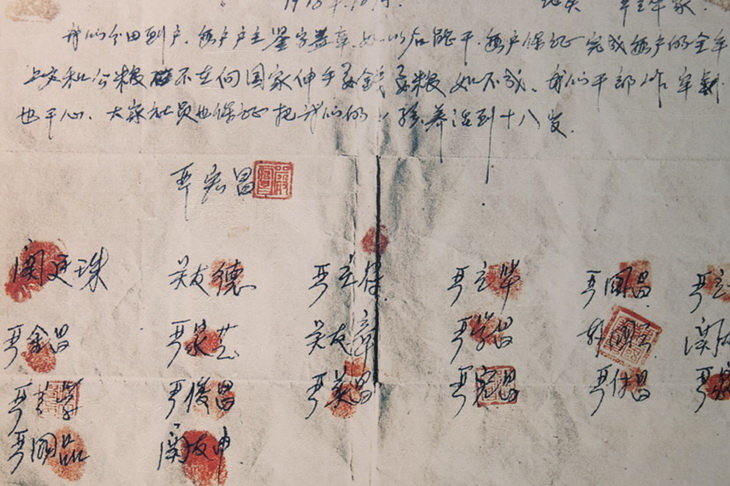 1978年12月. 地点 严立华家.
我们分田到户，每户户主签字盖章，如以后能干，每户保证完成每户的全年
上交和公粮不在向国家伸手要钱要粮如不成，我们干部作牢刹
也干心，大家社员也保证把我们的小孩养活到十八岁.
严宏昌
关廷珠 关友德 严立付 严立华 严国昌 严立
严金昌 严家芝 关友章 严学昌 韩国云 关友
严立学 严俊昌 严美昌 严宏昌 严付昌 严家
严国品 关友申